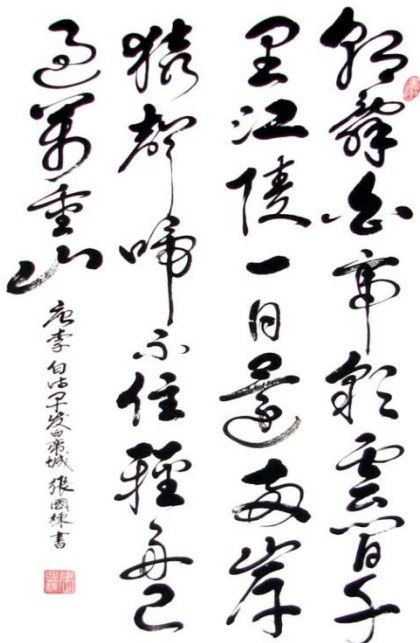 朝辭白帝彩雲間千
里江陵一日還兩岸
猿聲啼不住輕舟已
過萬重山
唐李白诗早发白帝城 張國棟書